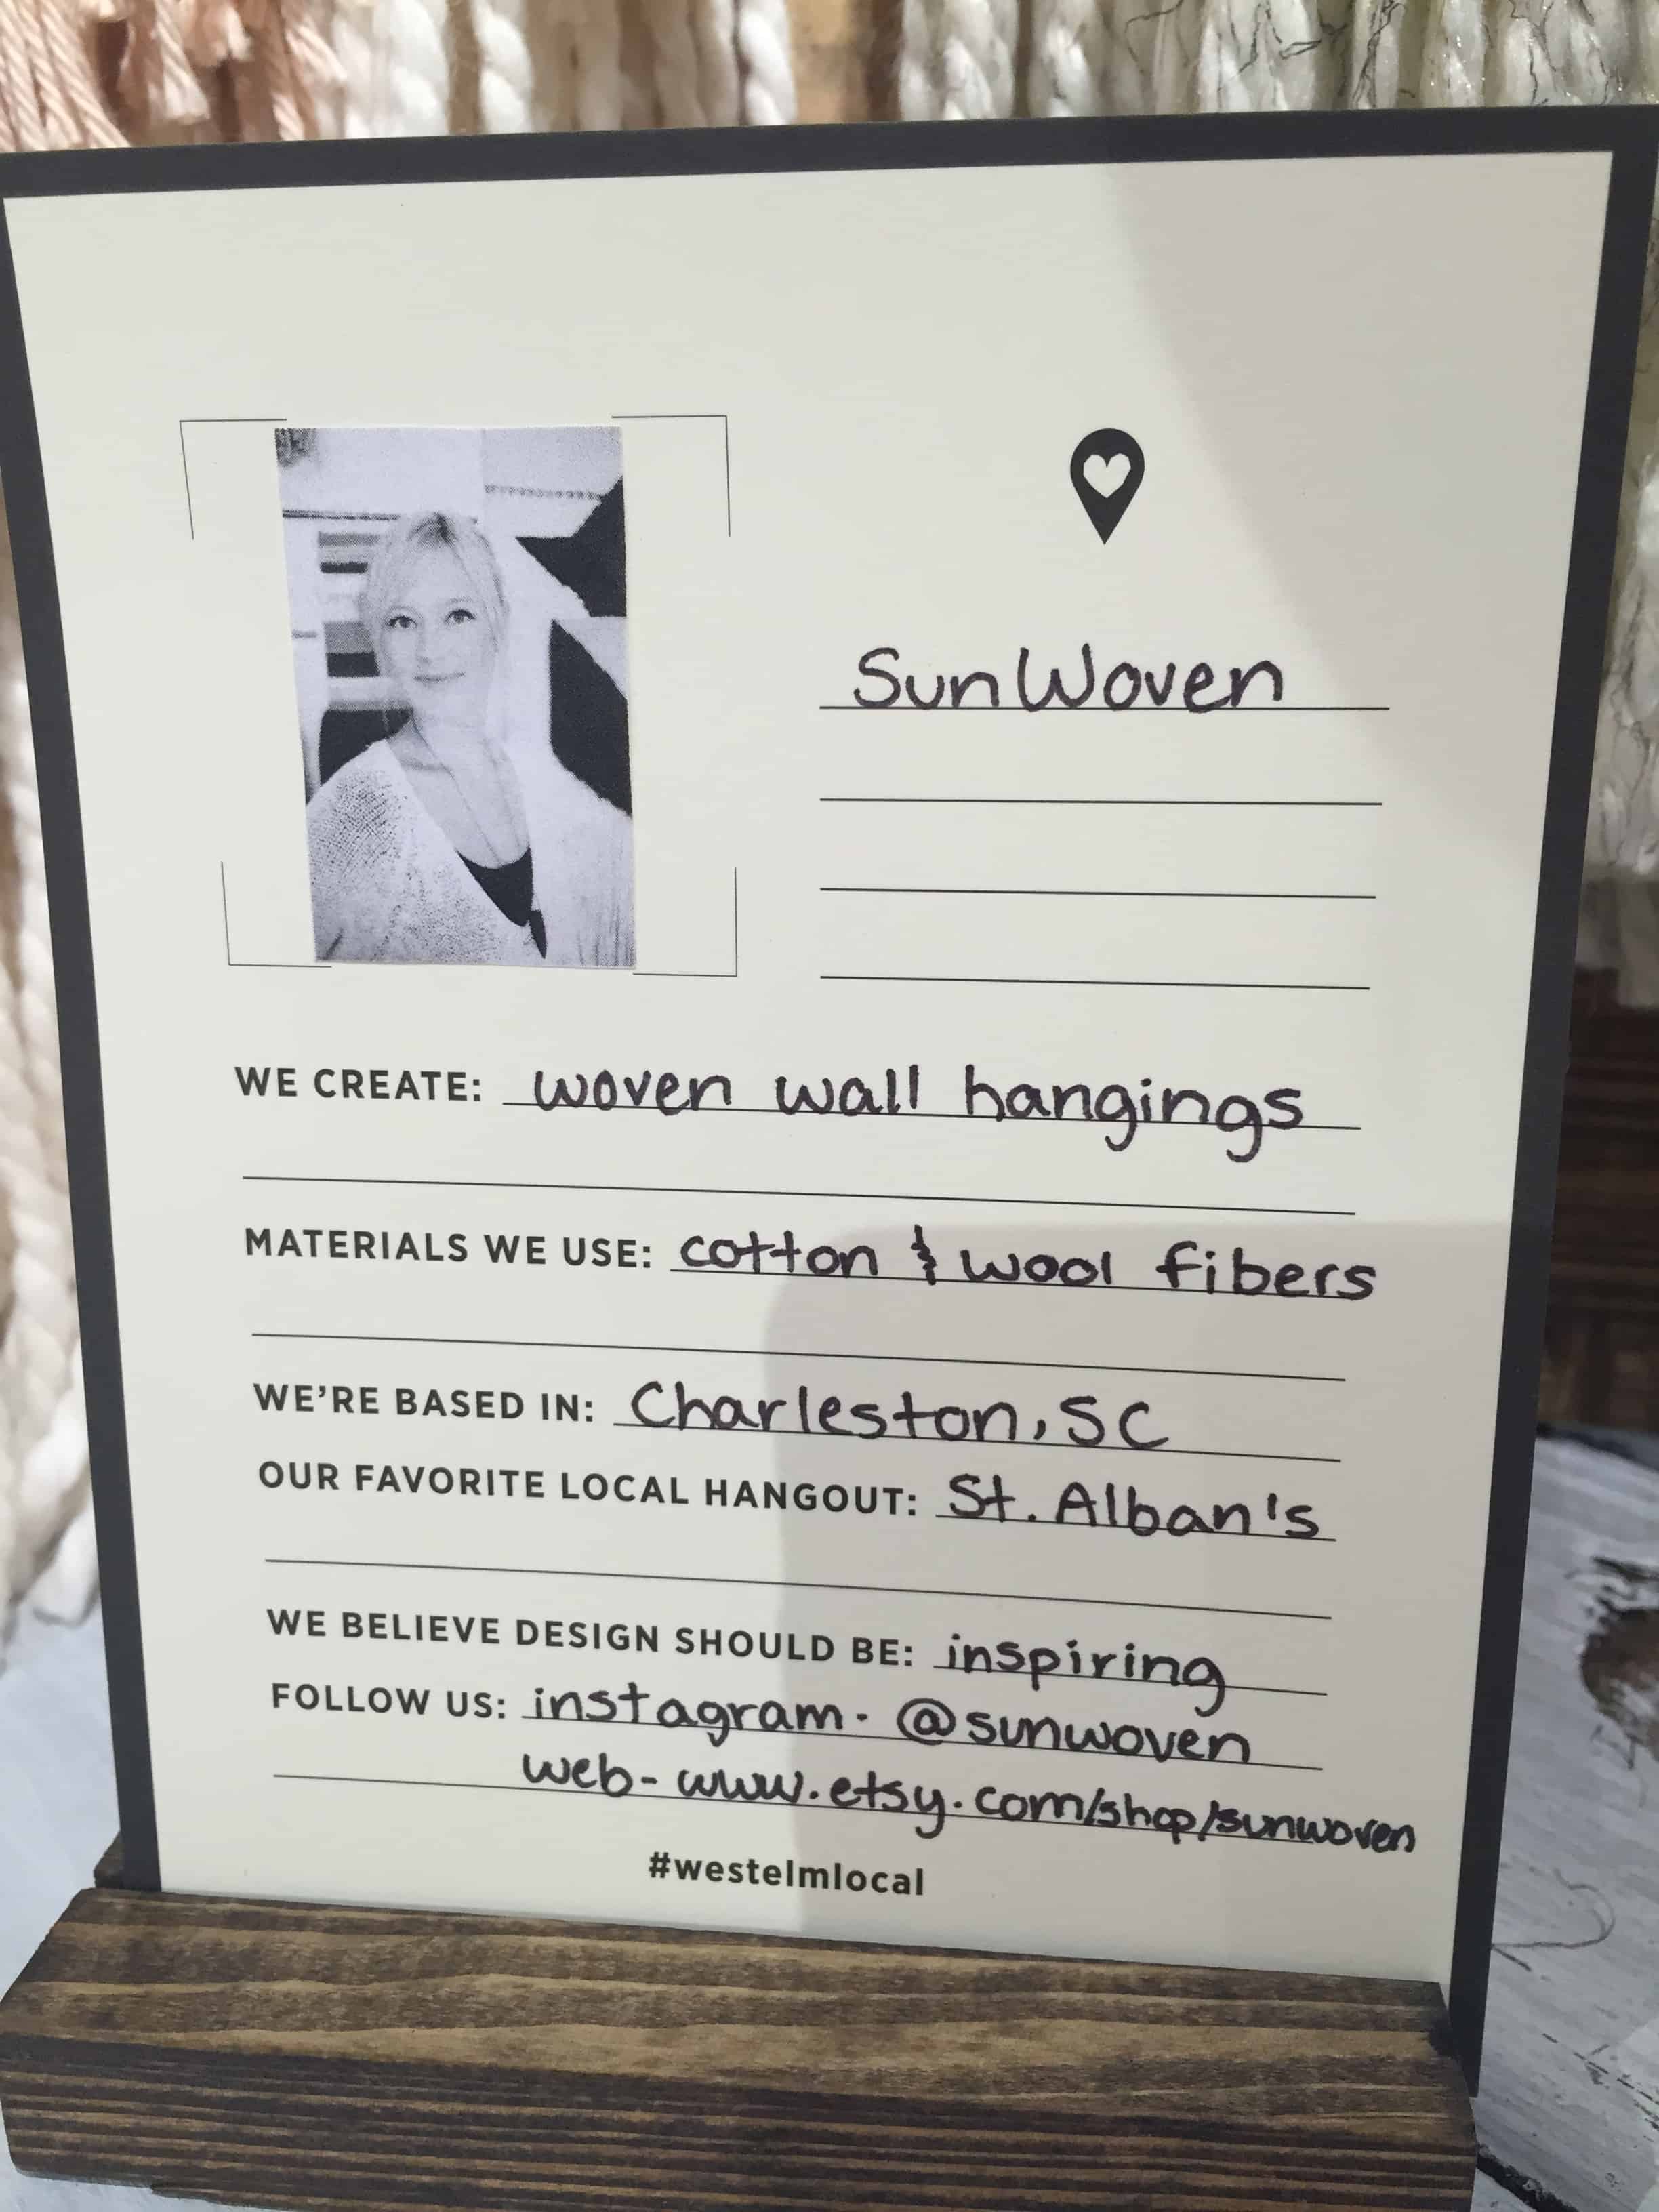 Sun Woven
WE CREATE: woven wall hangings
MATERIALS WE USE: cotton & wool fibers
WE'RE BASED IN: Charleston, SC
OUR FAVORITE LOCAL HANGOUT: St. Alban's
WE BELIEVE DESIGN SHOULD BE: inspiring
FOLLOW US: instagram- @sunwoven
web- www.etsy.com/shop/sunwoven
#westelmlocal